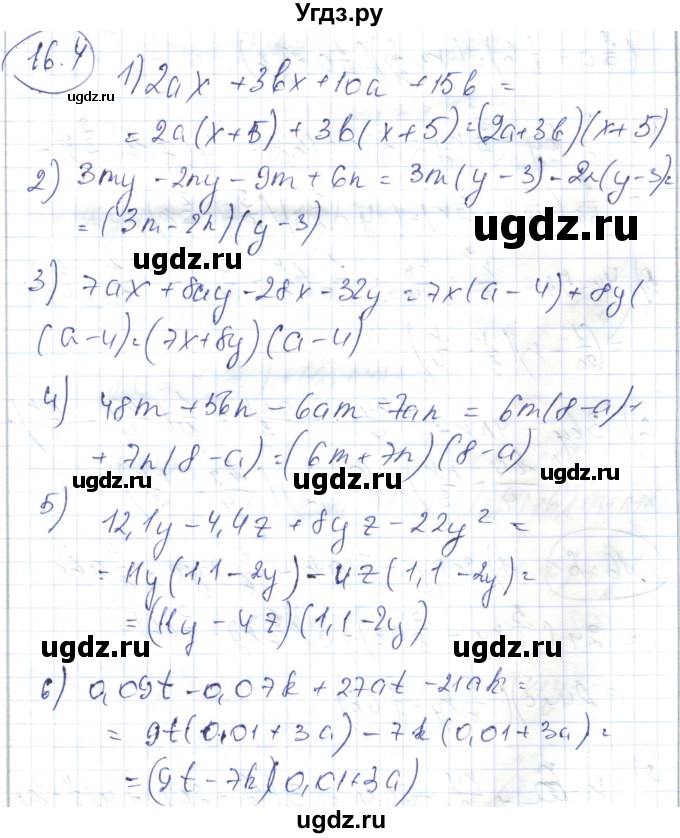 Угдз.ру
16.4
1) 2ax + 3bx + 10a + 15b =
= 2a(x+5) + 3b(x+5) = (2a+3b)(x+5)
2) 3my - 2ny - 9m + 6n = 3m(y-3) - 2n(y-3) =
= (3m-2n)(y-3)
3) 7ax + 8ay - 28x - 32y = 7x(a-4) + 8y(
(a-4) = (7x+8y)(a-4)
4) 48m + 56n - 6am - 7an = 6m(8-a) +
+ 7n(8-a) = (6m+7n)(8-a)
5) 12,1y - 4,4z + 8yz - 22y² =
= 11y(1,1-2y) - 4z(1,1-2y) =
= (11y-4z)(1,1-2y)
6) 0,09t - 0,07k + 27at - 21ak =
= 9t(0,01+3a) - 7k(0,01+3a) =
= (9t-7k)(0,01+3a)
ugdz.ru
ugdz.ru
ugdz.ru
ugdz.ru
ugdz.ru
ugdz.ru
ugdz.ru
ugdz.ru
ugdz.ru
ugdz.ru
ugdz.ru
ugdz.ru
ugdz.ru